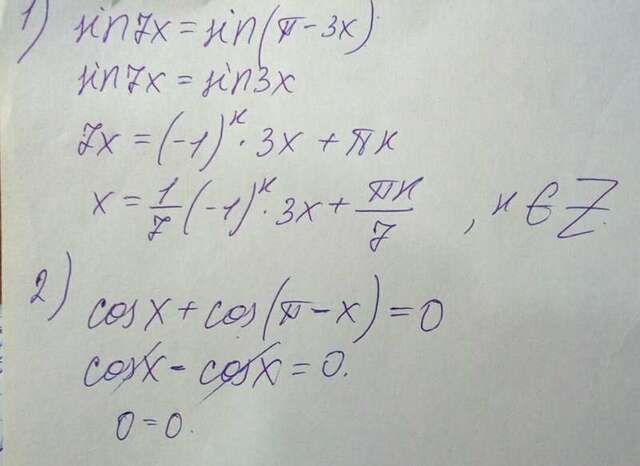 1) sin7x = sin(π-3x)
sin7x = sin3x
7x = (-1)^к · 3x + πк
x = 1/7 (-1)^к · 3x + πк/7 , к ∈ Z.
2) cosx + cos(π-x) = 0
cosx - cosx = 0.
0 = 0.